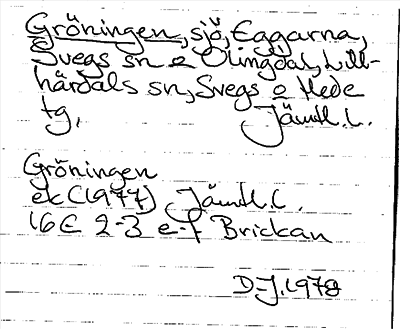 Gröningen, sjö, Eggarna,
Svegs sn o Olingdal, Lill-
härdals sn, Svegs o Hede
tg. Jämtl. L.
Gröningen
ek (1977) Jämtl. L.
16E 2-3 e-f Brickan
D-J. 1978